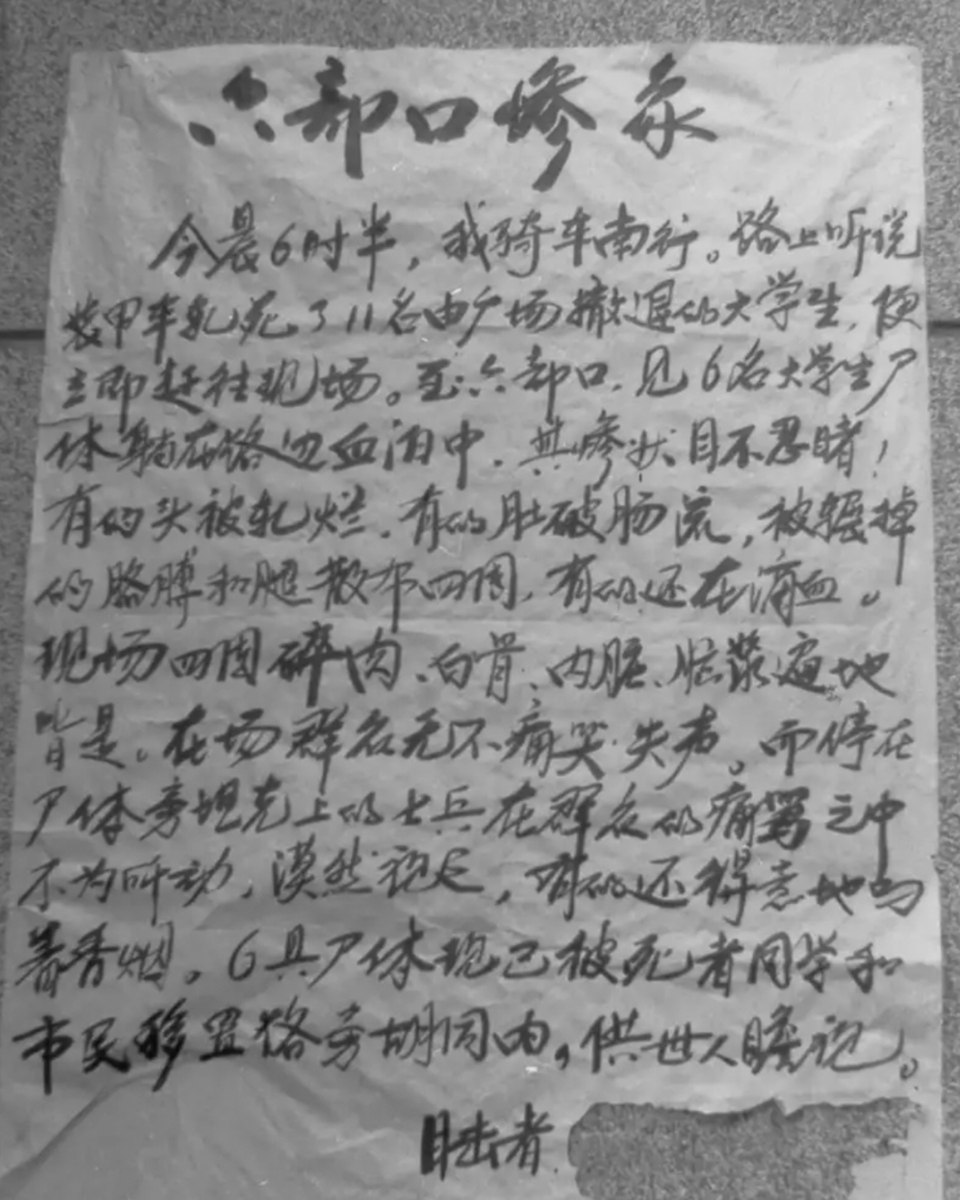 六部口惨象
今晨6时半，我骑车南行。路上听说
装甲车轧死了11名由广场撤退的大学生，便
立即赶往现场。至六部口，见6名大学生尸
体躺在路边血泊中，其惨状目不忍睹！
有的头被轧烂，有的肚破肠流，被辗掉
的胳膊和腿散布四周，有的还在滴血。
现场四周碎肉、白骨、内脏、脑浆遍地
皆是。在场群众无不痛哭失声。而停在
尸体旁坦克上的士兵在群众的痛骂之中
不为所动，漠然视之，有的还得意地叼
着香烟。6具尸体现已被死者同学和
市民移置路旁胡同内，供世人瞻视。
目击者